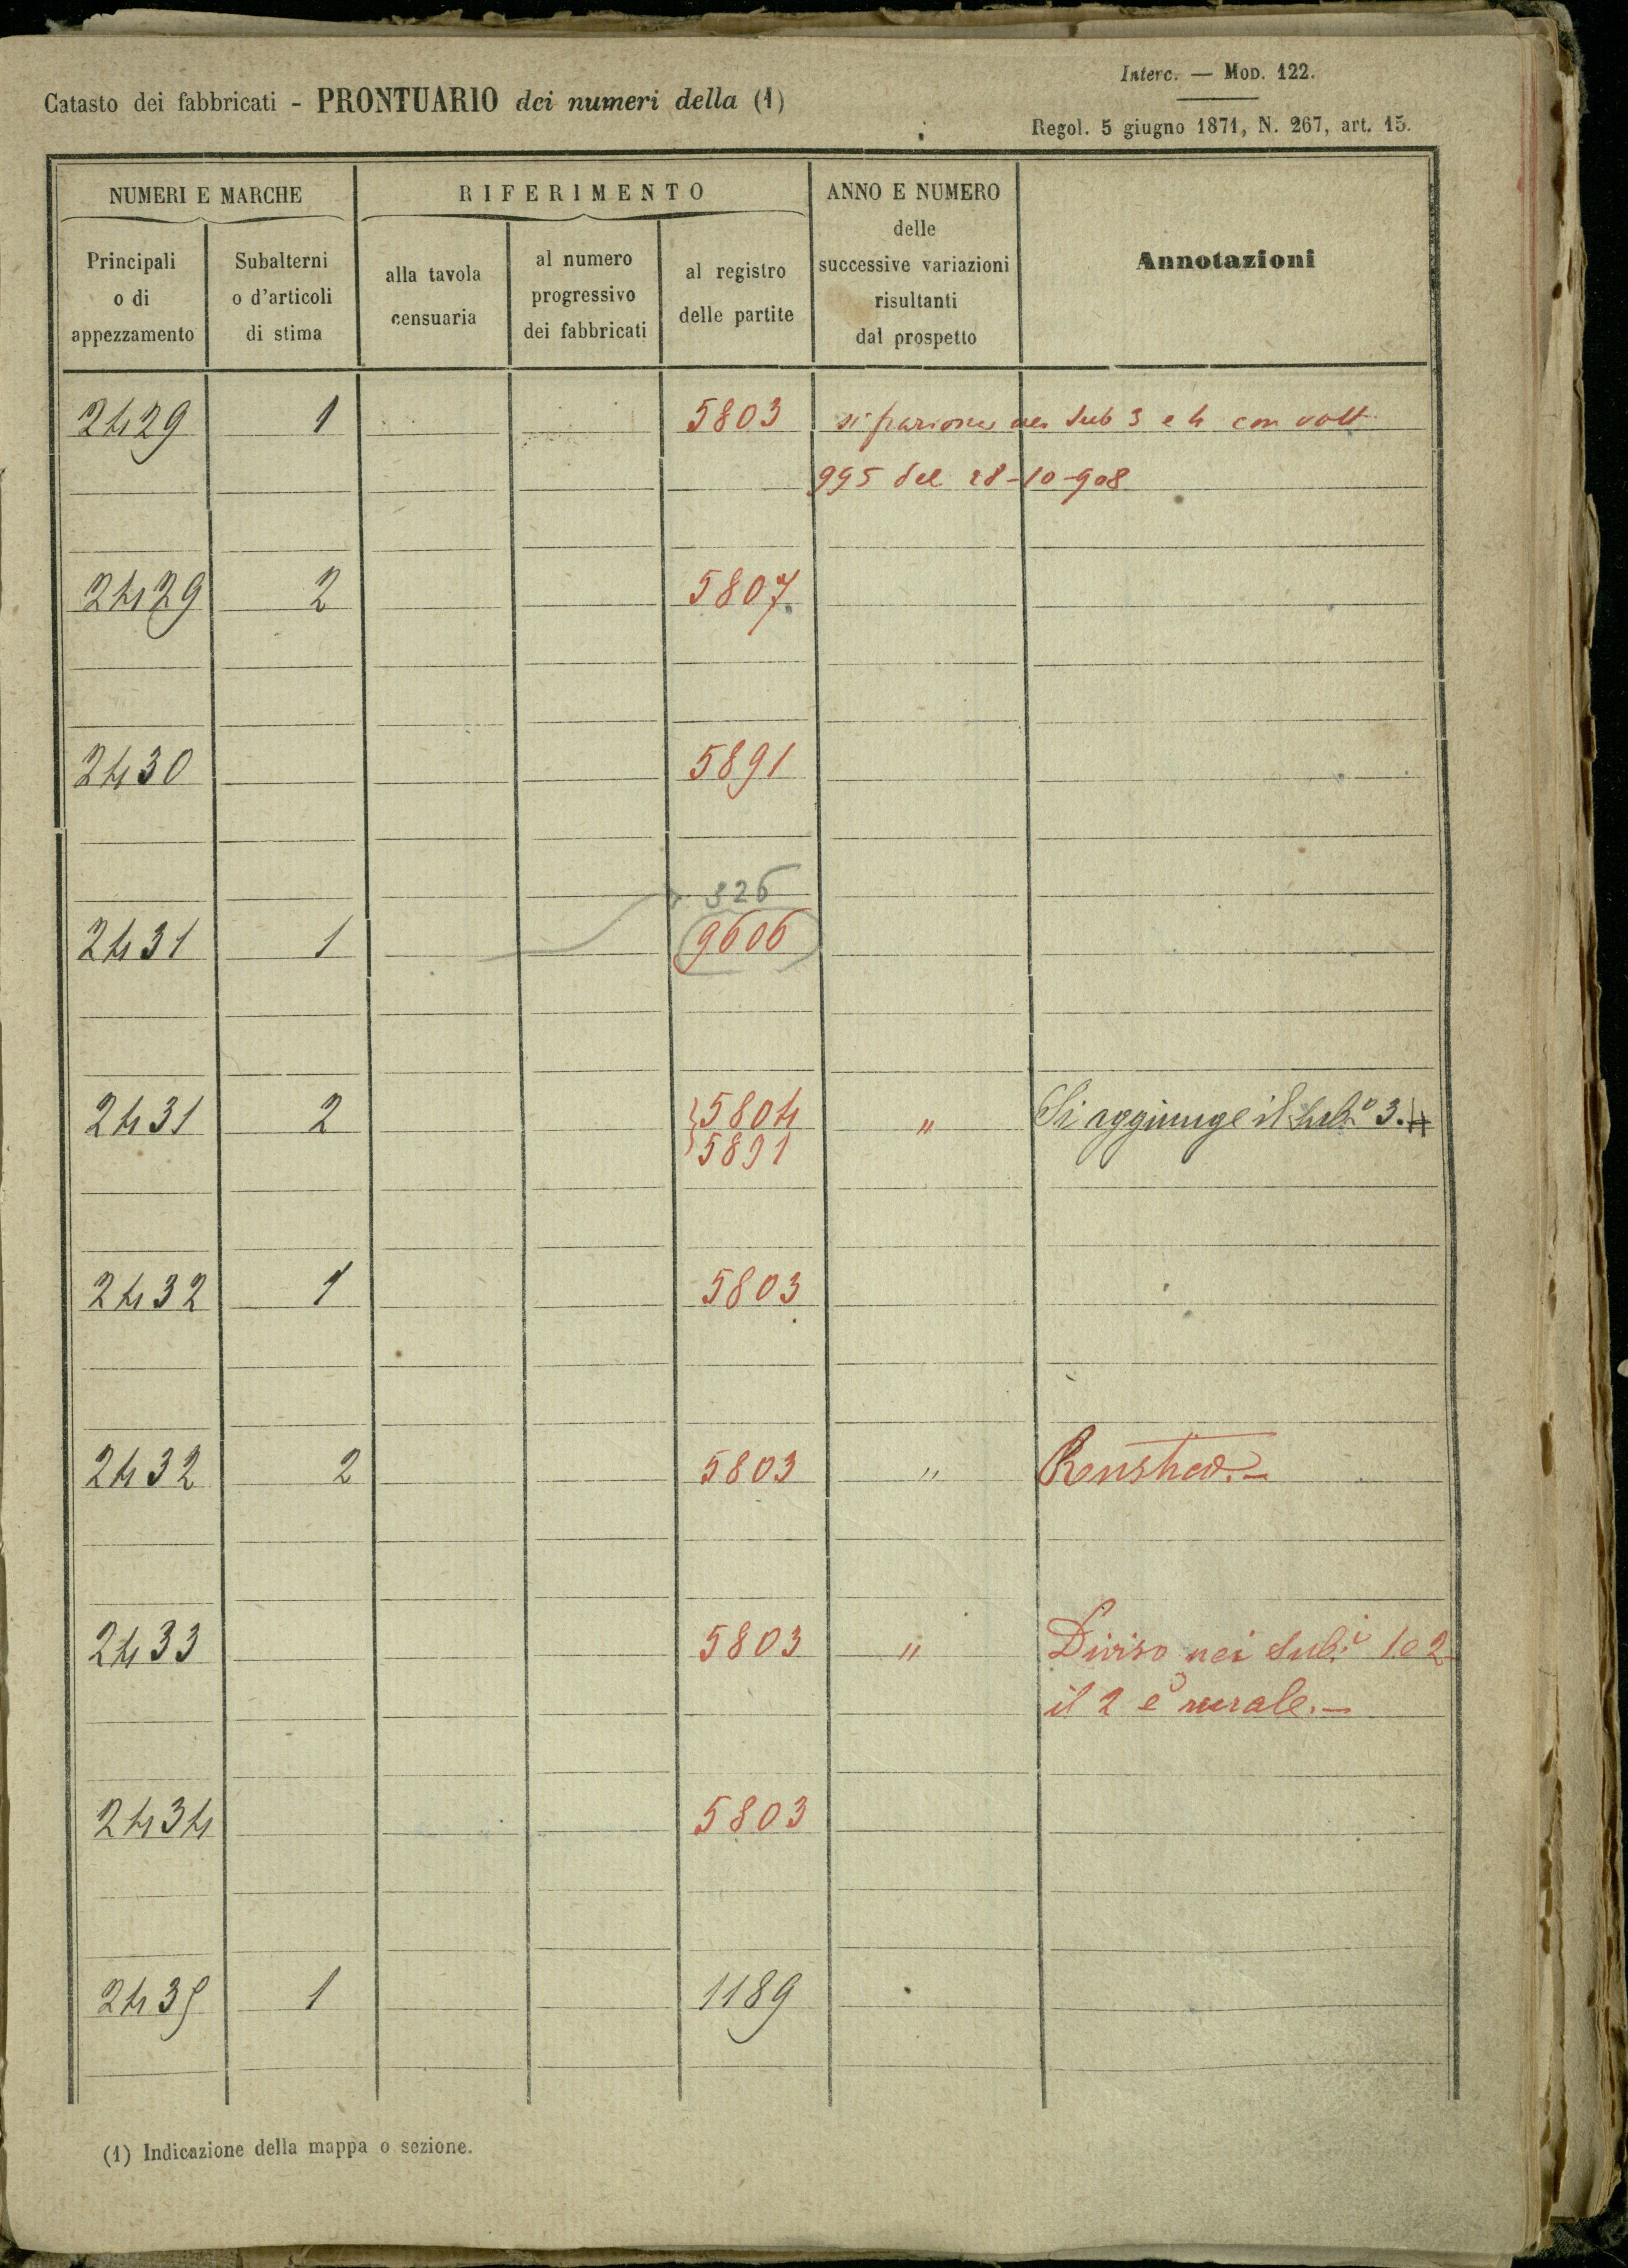 Interc. — Mod. 122.
Catasto dei fabbricati - PRONTUARIO dei numeri della (1)
Regol. 5 giugno 1871, N. 267, art. 15.
NUMERI E MARCHE
RIFERIMENTO
ANNO E NUMERO
delle
successive variazioni
risultanti
dal prospetto
Annotazioni
Principali
o di
appezzamento
Subalterni
o d'articoli
di stima
alla tavola
censuaria
al numero
progressivo
dei fabbricati
al registro
delle partite
2429 1 5803 si fraziona nei Sub 3 e 4 con volt
995 del 28-10-908
2429 2 5807
2430 5891
326
2431 1 9606
2431 2 5804 " Si aggiunge il Sub.o 3.
5891
2432 1 5803
2432 2 5803 "
2433 5803 " Diviso nei Sub.i 1 e 2
il 2 è rurale.—
2434 5803
2435 1 1189
(1) Indicazione della mappa o sezione.